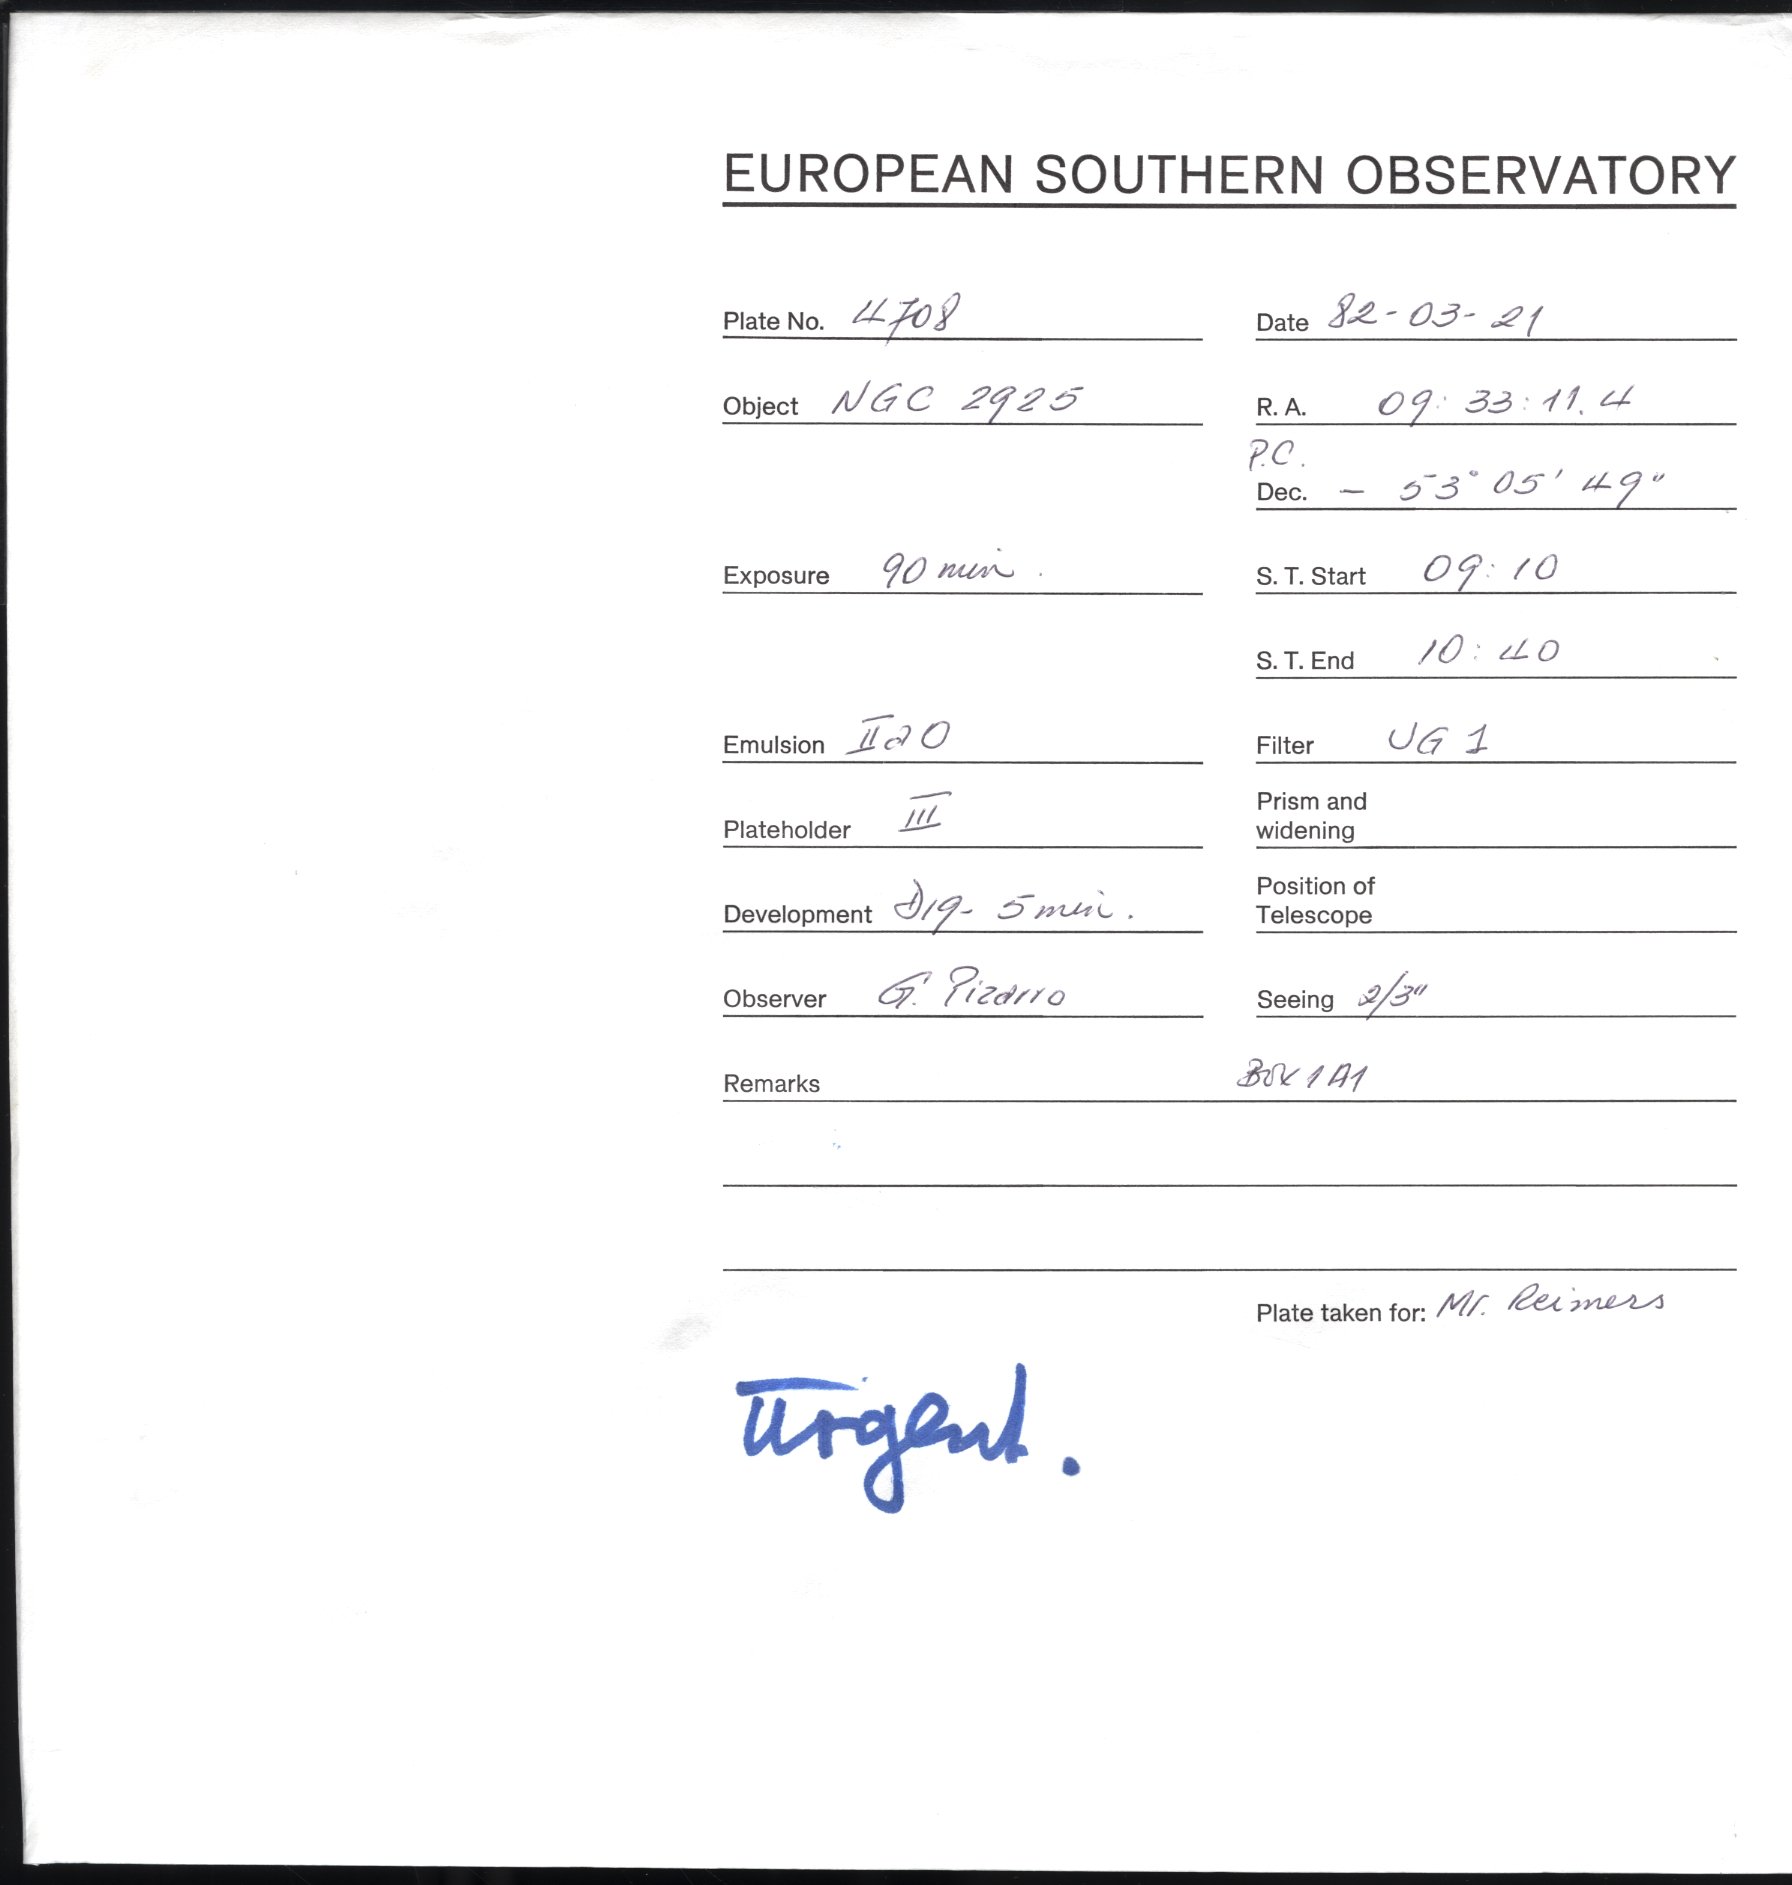 EUROPEAN SOUTHERN OBSERVATORY
Plate No. 4708 Date 82-03-21
Object NGC 2925 R. A. 09:33:11.4
P.C.
Dec. - 53° 05' 49"
Exposure 90 min. S. T. Start 09:10
S. T. End 10:40
Emulsion IIaO Filter UG 1
Plateholder III Prism and
widening
Development D19- 5 min. Position of
Telescope
Observer G. Pizarro Seeing 2/3"
Remarks BOX 1 A1
Plate taken for: Mr. Reimers
Urgent.